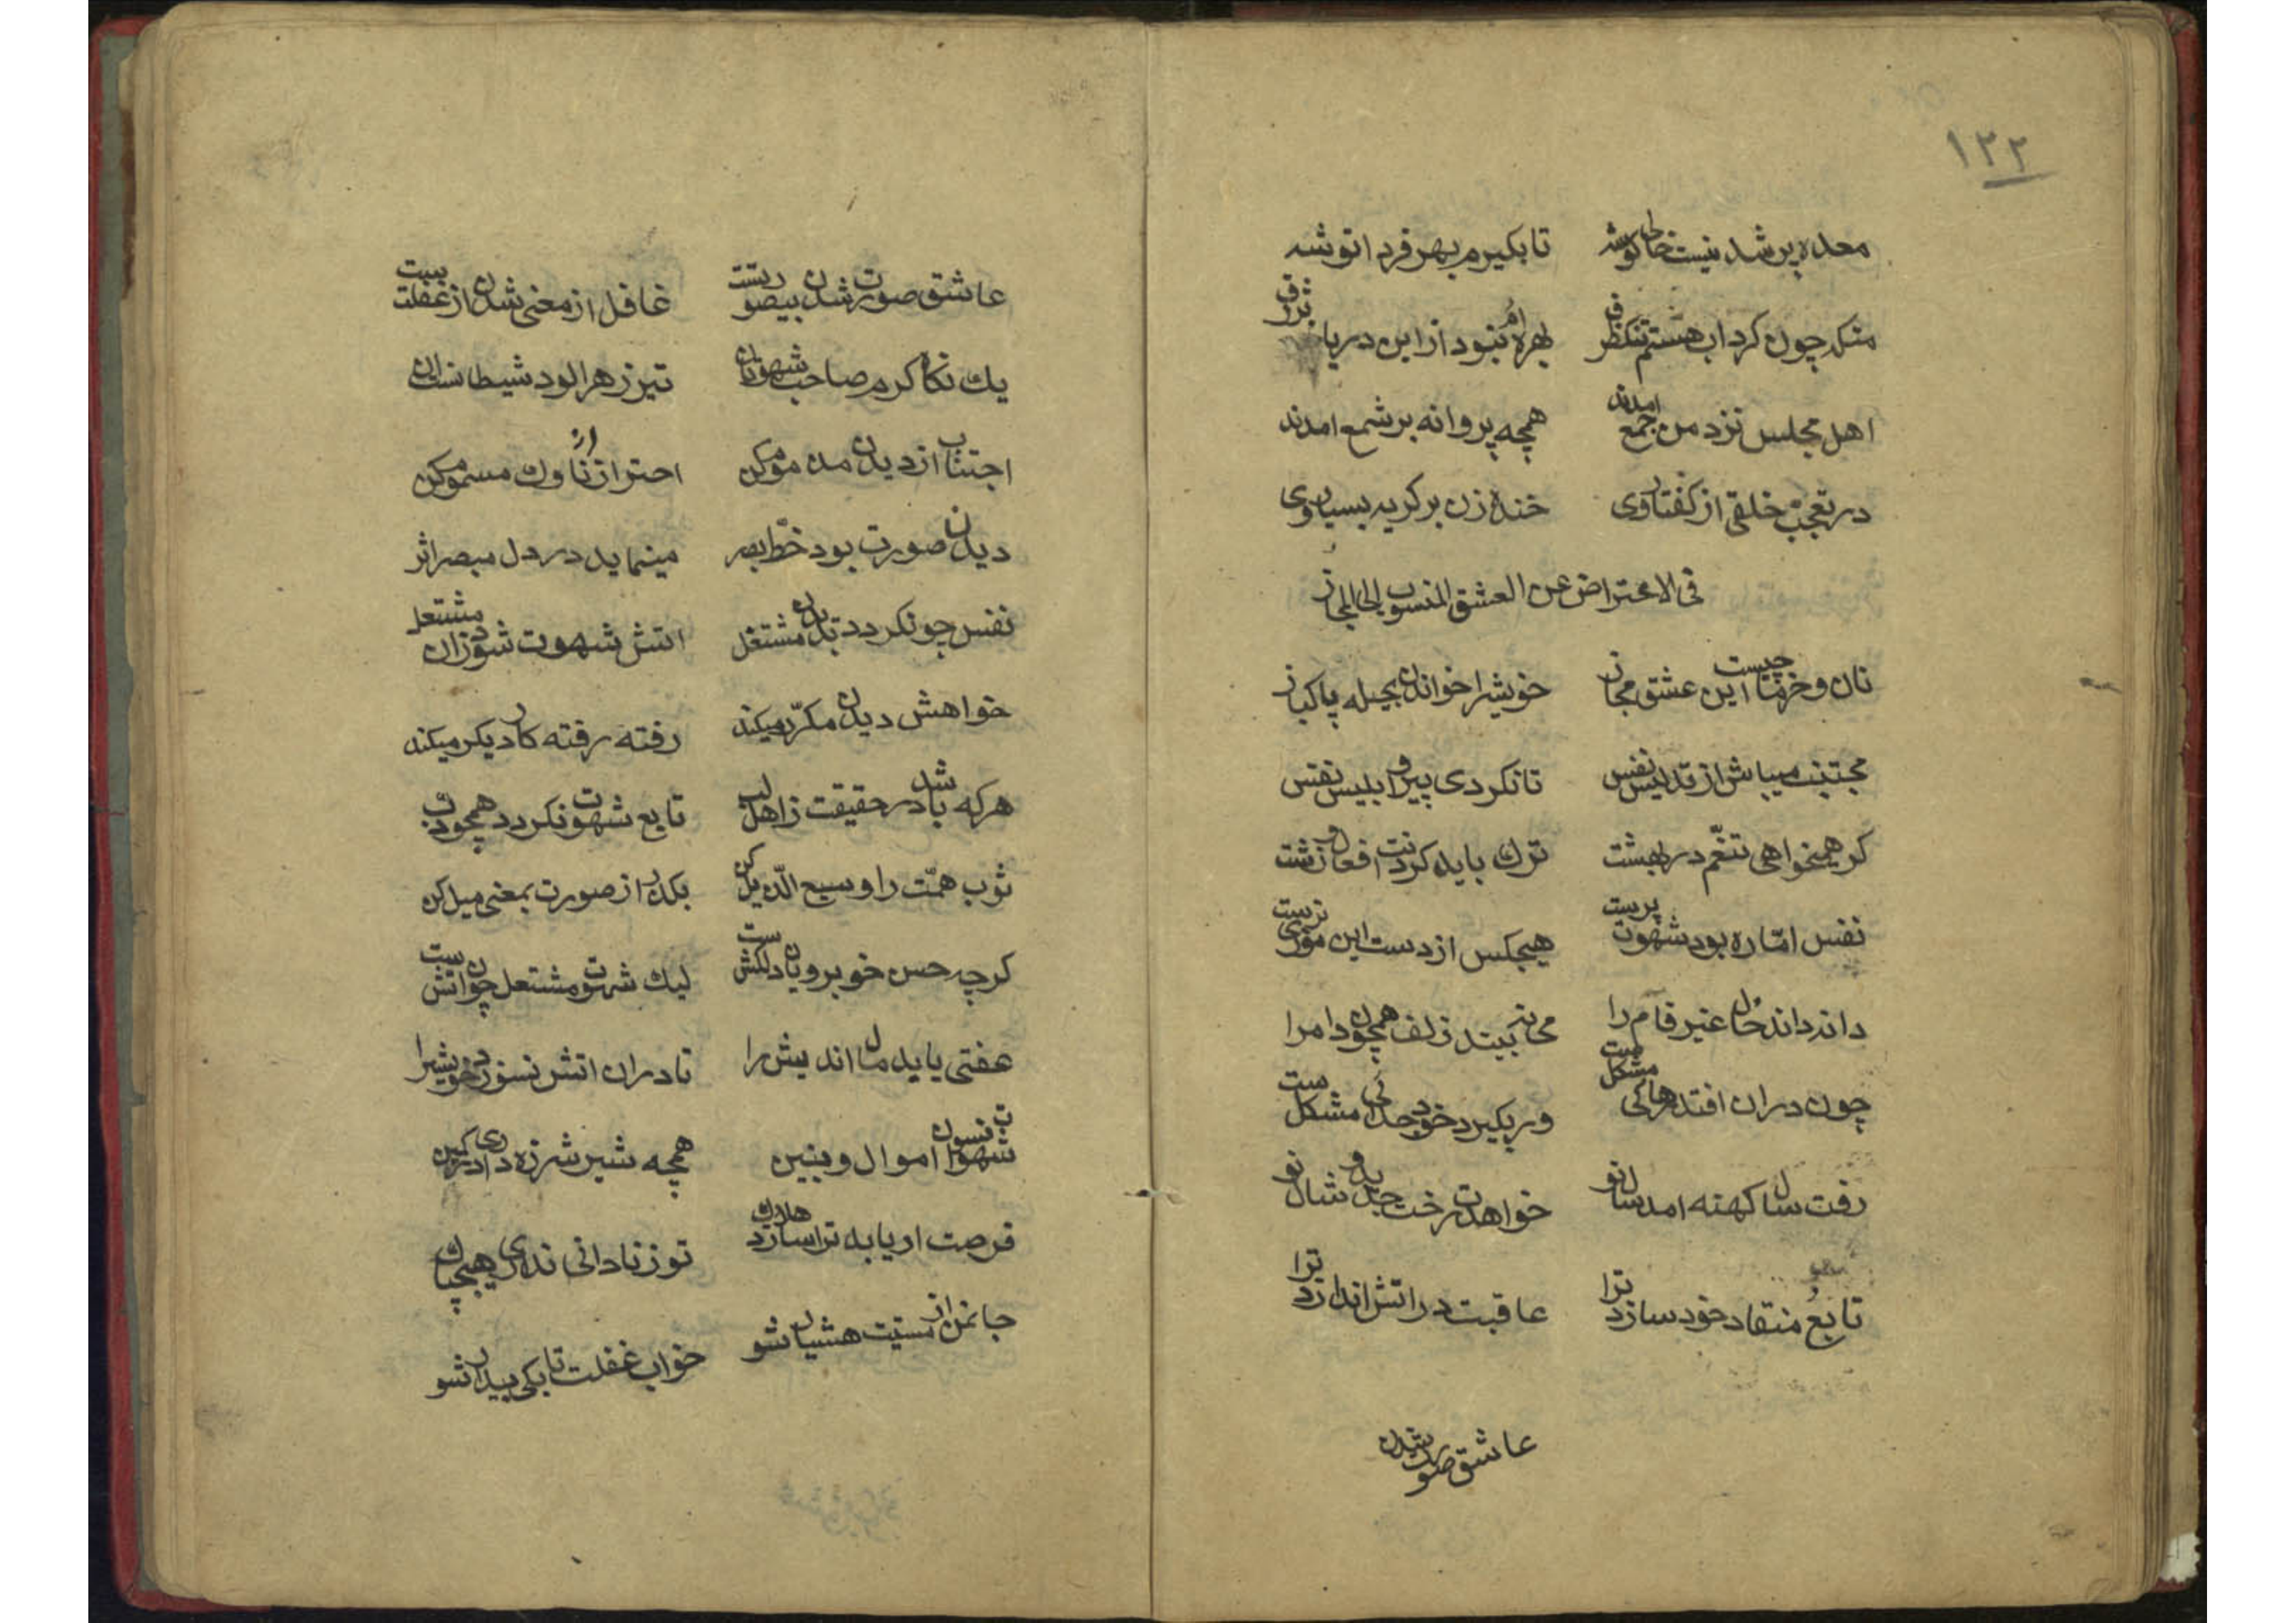 ۱۲۲
معده پر شد نیست خالی گوشه تا بکیرم بهر فردا توشه
منکه چون کرداب هستم تنکظرف بهره ام نبود از این دریا ژرف
اهل مجلس نزد من جمع امدند همچه پروانه بر شمع امدند
در تعجب خلقی از کفتار وی خنده زن بر کریه بسیار وی
فی الاعتراض عن العشق المنسوب الی المجاز
نان و خرما چیست این عشق مجاز خویشرا خواندن بحیله پاکباز
مجتنب میباش از تدلیس نفس تا نکردی پیرو ابلیس نفس
کر همیخواهی تنعّم در بهشت ترک باید کردنت افعال زشت
نفس امّاره بود شهوت پرست هیچکس از دست این موذی نرست
داند داند خال عنبر فام را بیند زلف همچون دام را
چون در ان افتد رهائی مشکلست ور بکیرد خو جدائی مشکلست
رفت سال کهنه امد سال نو خواهدت رخت جدید و شال نو
تابع منقاد خود سازد ترا عاقبت در اتش اندازد ترا
عاشق صورت شدن
عاشق صورت شدن بیصورتیست غافل از معنی شدن از غفلتیست
یک نکاه کرم صاحب شهوتان تیر زهرالود شیطانست ان
اجتناب از دیدن مذموم کن احتراز از ناوک مسموم کن
دیدن صورت بود خطّ بصر مینماید در دل مبصر اثر
نفس چو نکردد بدیدن مشتغل اتش شهوت شود زان مشتعل
خواهش دیدن مکرّر میکند رفته رفته کار دیکر میکند
هرکه باشد در حقیقت ز اهل لب تابع شهوت نکردد همچو دب
ثوب همّت را وسیع الذّیل کن بکذر از صورت بمعنی میل کن
کرچه حسن خوبرویان دلکشست لیک شهوت مشتعل چون اتشست
عفتی باید مال اندیش را تا در ان اتش نسوزد خویشرا
شهوت نسوان اموال و بنین همچه شیر شرزه داری در کمین
فرصت ار یابد ترا سازد هلاک تو ز نادانی نداری هیچ باک
جانمن از مستیت هشیار شو خواب غفلت تا بکی بیدار شو